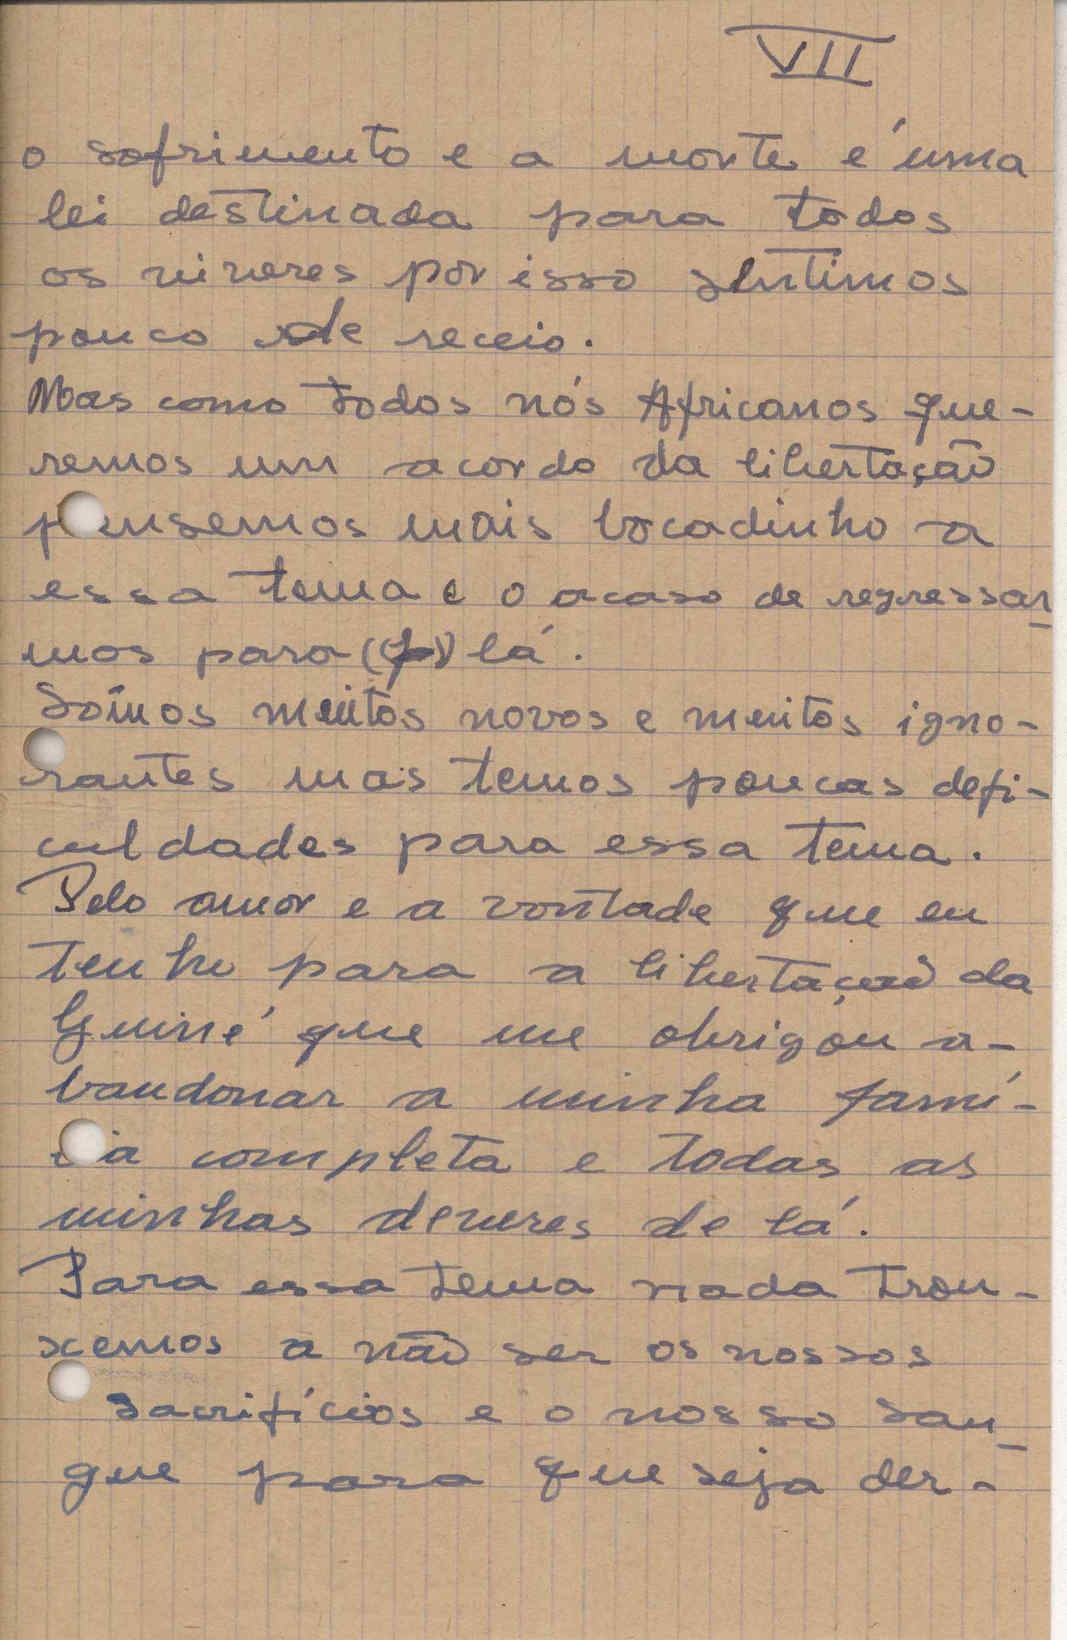 VII
o sofrimento e a morte é uma
lei destinada para todos
os viveres por isso sentimos
pouco de receio.
Mas como todos nós Africanos que-
remos um acordo da libertação
pensemos mais bocadinho a
essa tema e o acaso de regressar-
mos para (p) lá.
Sômos muitos novos e muitos igno-
rantes mas temos poucas defi-
culdades para essa tema.
Pelo amor e a vontade que eu
tenho para a libertação da
Guiné que me obrigou a-
bandonar a minha famí-
lia completa e todas as
minhas deveres de lá.
Para essa tema nada trou-
xemos a não ser os nossos
sacrifícios e o nosso san-
gue para que seja der-